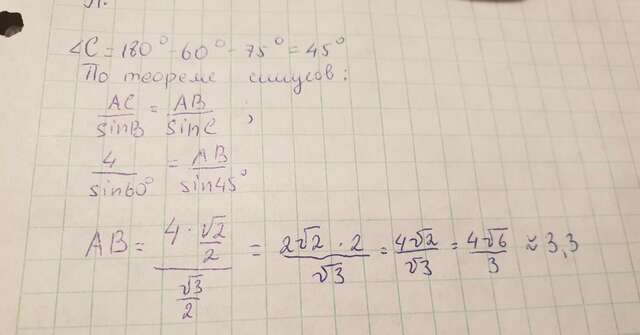 ∠C = 180° - 60° - 75° = 45°
По теореме синусов:
AC/sinB = AB/sinC ;
4/sin60° = AB/sin45°
AB = (4 · √2/2)/(√3/2) = (2√2 · 2)/√3 = 4√2/√3 = 4√6/3 ≈ 3,3